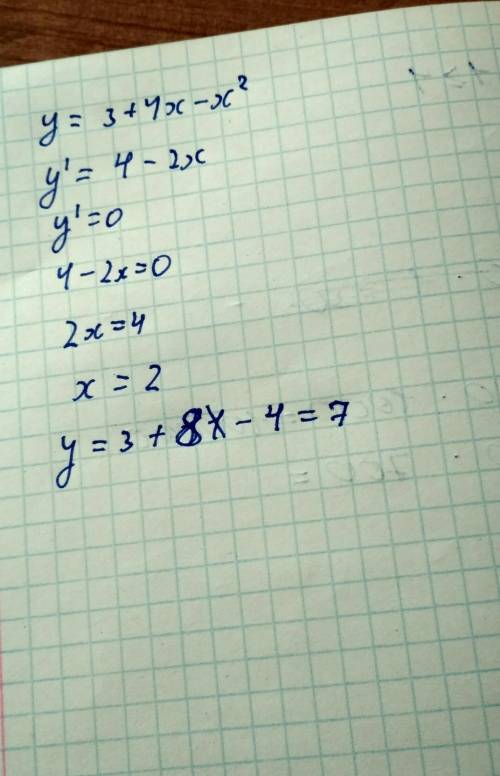 y = 3 + 4x - x²
y' = 4 - 2x
y' = 0
4 - 2x = 0
2x = 4
x = 2
y = 3 + 8 - 4 = 7